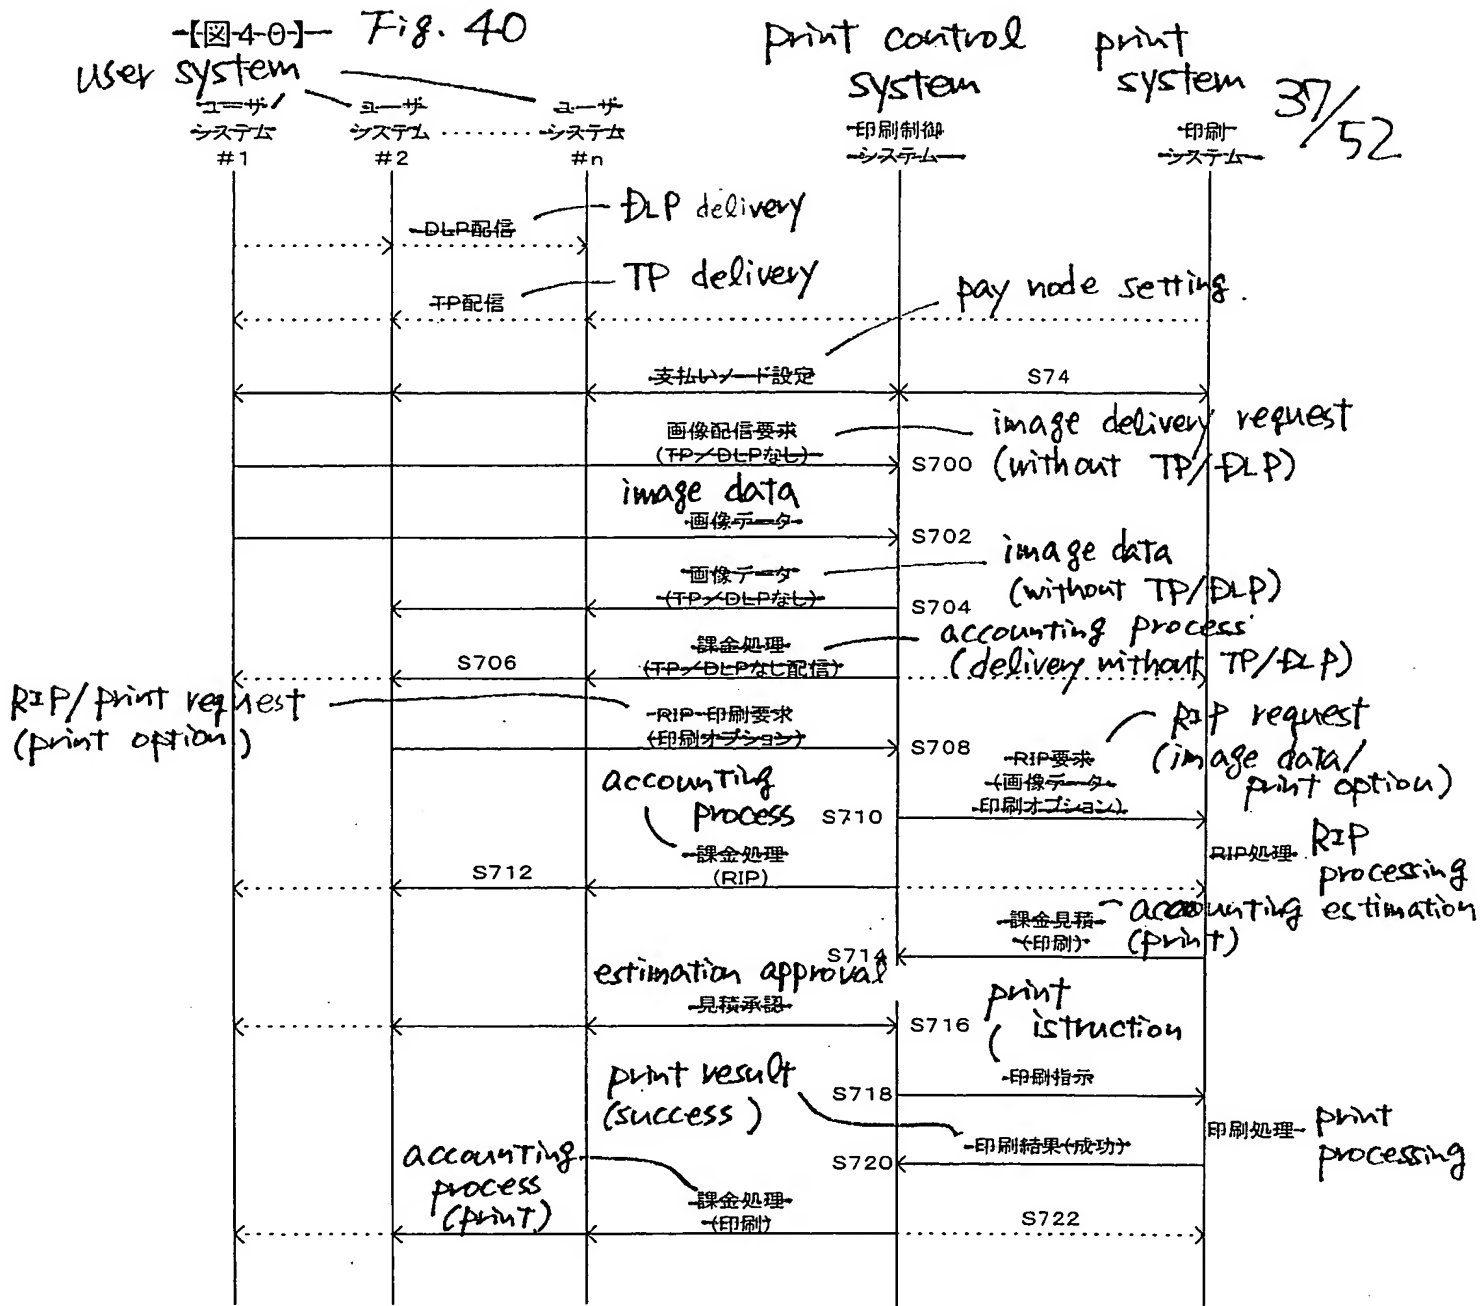 【図40】 Fig. 40
print control system
print system
37/52
user system
ユーザ システム #1
ユーザ システム #2
ユーザ システム #n
印刷制御 システム
印刷 システム
DLP配信
DLP delivery
TP配信
TP delivery
pay node setting.
支払いノード設定
S74
画像配信要求
(TP/DLPなし)
S700
image delivery request
(without TP/DLP)
image data
画像データ
S702
画像データ
(TP/DLPなし)
S704
image data
(without TP/DLP)
S706
課金処理
(TP/DLPなし配信)
accounting process
(delivery without TP/DLP)
RIP/print request
(print option)
RIP・印刷要求
(印刷オプション)
S708
RIP要求
(画像データ・
印刷オプション)
RIP request
(image data/
print option)
S710
accounting
process
課金処理
(RIP)
S712
RIP処理
RIP
processing
課金見積
(印刷)
accounting estimation
(print)
S714
estimation approval
見積承認
S716
print
istruction
印刷指示
S718
print result
(success)
印刷結果(成功)
S720
印刷処理
print
processing
accounting
process
(print)
課金処理
(印刷)
S722